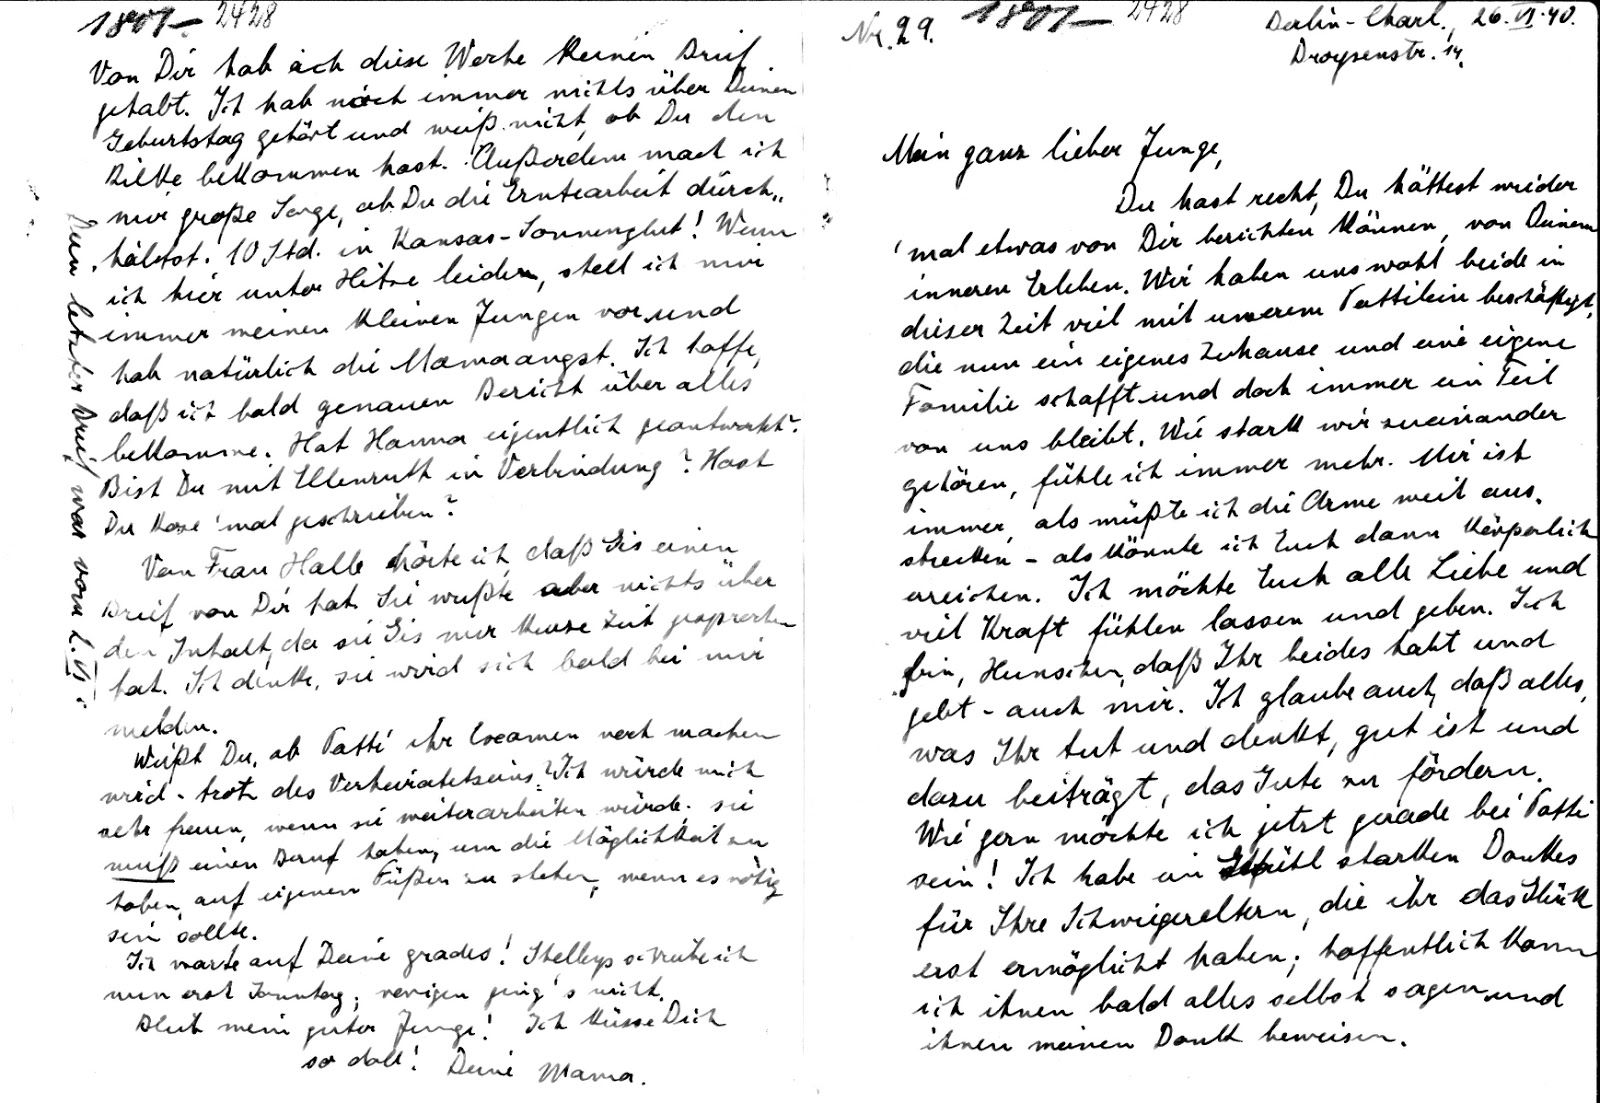 Nr. 29.
1801- 2428
Berlin-Charl., 26.VI.40.
Droysenstr. 14.
Mein ganz lieber Junge,
Du hast recht, Du hättest wieder
'mal etwas von Dir berichten können, von Deinem
inneren Erleben. Wir haben uns wohl beide in
dieser Zeit viel mit unserem Pattilein beschäftigt,
die nun ein eigenes Zuhause und eine eigene
Familie schafft und doch immer ein Teil
von uns bleibt. Wie stark wir zueinander
gehören, fühle ich immer mehr. Mir ist
immer, als müßte ich die Arme weit aus-
strecken - als könnte ich Euch dann körperlich
erreichen. Ich möchte Euch alle Liebe und
viel Kraft fühlen lassen und geben. Ich
bin, Hunschen, daß Ihr beides habt und
gebt - auch mir. Ich glaube auch, daß alles,
was Ihr tut und denkt, gut ist und
dazu beiträgt, das Gute zu fördern.
Wie gern möchte ich jetzt gerade bei Patti
sein! Ich habe ein Gefühl starken Dankes
für Ihre Schwiegereltern, die ihr das Glück
erst ermöglicht haben; hoffentlich kann
ich ihnen bald alles selbst sagen und
ihnen meinen Dank beweisen.
1801- 2428
Von Dir hab ich diese Woche keinen Brief
gehabt. Ich hab noch immer nichts über Deinen
Geburtstag gehört und weiß nicht, ob Du den
Rilke bekommen hast. Außerdem mach ich
mir große Sorge, ob Du die Erntearbeit durch-
hältst. 10 Std. in Kansas-Sonnenglut! Wenn
ich hier unter Hitze leiden, stell ich mir
immer meinen kleinen Jungen vor und
hab natürlich die Mamaangst. Ich hoffe,
daß ich bald genauen Bericht über alles
bekomme. Hat Hanna eigentlich geantwortet?
Bist Du mit Ellenruth in Verbindung? Hast
Du 'mal geschrieben?
Von Frau Halle hörte ich, daß Gis einen
Brief von Dir hat. Sie wußte aber nichts über
den Inhalt, da sie Gis nur kurze Zeit gesprochen
hat. Ich denke, sie wird sich bald bei mir
melden.
Weißt Du, ob Patti ihr Examen noch machen
wird - trotz des Verheiratetseins? Ich würde mich
sehr freuen, wenn sie weiterarbeiten würde. Sie
muß einen Beruf haben, um die Möglichkeit zu
haben, auf eigenen Füßen zu stehen, wenn es nötig
sein sollte.
Ich warte auf Deine grades! Shelleys schreibe ich
nun erst Sonntag; vorigen ging's nicht.
Bleib mein guter Junge! Ich küsse Dich
so doll! Deine Mama.
Dein letzter Brief war vom 2.VI.